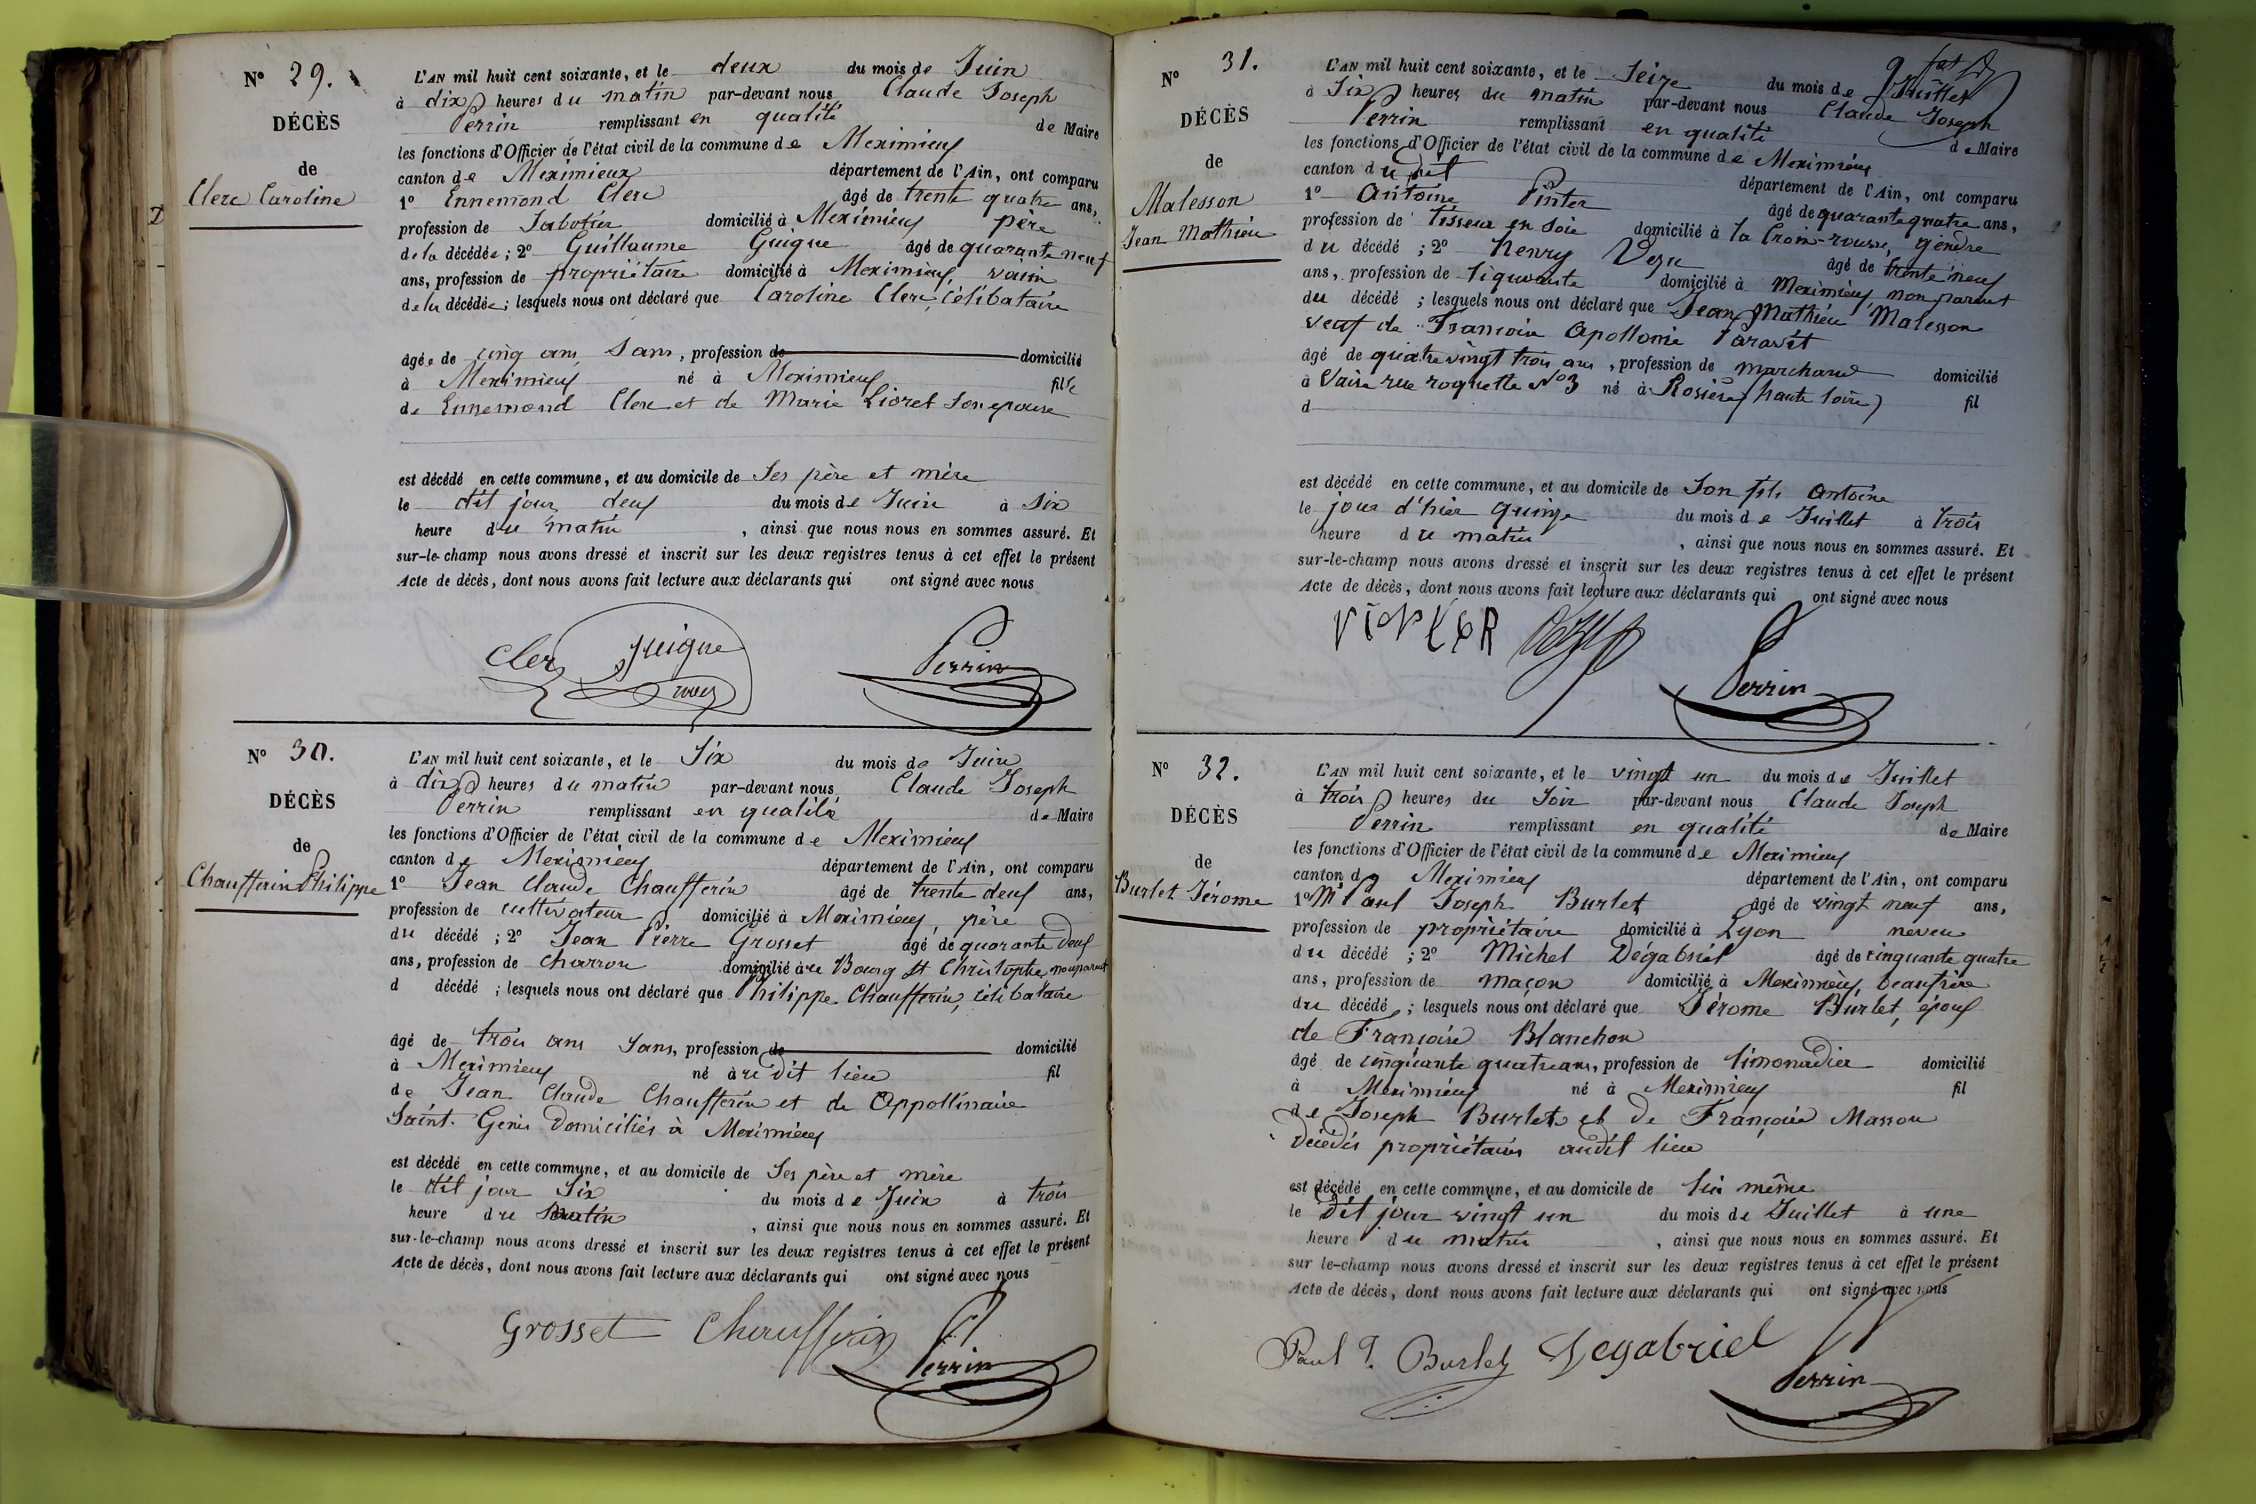 N° 29.
DÉCÈS
de
Clerc Caroline
L'AN mil huit cent soixante, et le deux du mois de Juin
à dix heures du matin par-devant nous Claude Joseph
Perrin remplissant en qualité de Maire
les fonctions d'Officier de l'état civil de la commune de Meximieux
canton de Meximieux département de l'Ain, ont comparu
1° Ennemond Clerc âgé de trente quatre ans,
profession de Sabotier domicilié à Meximieux père
de la décédée; 2° Guillaume Guigue âgé de quarante neuf
ans, profession de propriétaire domicilié à Meximieux, voisin
de la décédée; lesquels nous ont déclaré que Caroline Clerc, célibataire
âgée de cinq ans Sans, profession de domicilié
à Meximieux né à Meximieux fille
de Ennemond Clerc et de Marie Lioret Son epouse
est décédé en cette commune, et au domicile de Ses père et mère
le dit jour deux du mois de Juin à Six
heure du matin, ainsi que nous nous en sommes assuré. Et
sur-le-champ nous avons dressé et inscrit sur les deux registres tenus à cet effet le présent
Acte de décès, dont nous avons fait lecture aux déclarants qui ont signé avec nous
Clerc guigue Perrin
N° 30.
DÉCÈS
de
Chaufferin Philippe
L'AN mil huit cent soixante, et le Six du mois de Juin
à dix heures du matin par-devant nous Claude Joseph
Perrin remplissant en qualité de Maire
les fonctions d'Officier de l'état civil de la commune de Meximieux
canton de Meximieux département de l'Ain, ont comparu
1° Jean Claude Chaufferin âgé de trente deux ans,
profession de cultivateur domicilié à Meximieux, père
du décédé; 2° Jean Pierre Grosset âgé de quarante Deux
ans, profession de charron domicilié à Bourg St Christophe, non parent
d décédé; lesquels nous ont déclaré que Philippe Chaufferin, célibataire
âgé de trois ans Sans, profession de domicilié
à Meximieux né au dit lieu fil
de Jean Claude Chaufferin et de Appollinaire
Saint. Genis Domiciliés à Meximieux
est décédé en cette commune, et au domicile de Ses père et mère
le dit jour Six du mois de Juin à trois
heure du matin, ainsi que nous nous en sommes assuré. Et
sur-le-champ nous avons dressé et inscrit sur les deux registres tenus à cet effet le présent
Acte de décès, dont nous avons fait lecture aux déclarants qui ont signé avec nous
Grosset Chaufferin Perrin
N° 31.
DÉCÈS
de
Malesson
Jean Mathieu
L'AN mil huit cent soixante, et le Seize du mois de Juillet
à Six heures du matin par-devant nous Claude Joseph
Perrin remplissant en qualité de Maire
les fonctions d'Officier de l'état civil de la commune de Meximieux
canton du dit département de l'Ain, ont comparu
1° Antoine Pinter âgé de quarante quatre ans,
profession de tisseur en Soie domicilié à la Croix-rousse, gendre
du décédé; 2° henry Vezu âgé de trente neuf
ans, profession de liquoriste domicilié à Meximieux, non parent
du décédé; lesquels nous ont déclaré que Jean Mathieu Malesson
veuf de Francoise Apollonie Paravit
âgé de quatre vingt trois ans, profession de marchand domicilié
à Vaise rue roquette N° 3 né à Rosières (haute loire) fil
d
est décédé en cette commune, et au domicile de Son fils Antoine
le jour d'hier quinze du mois de Juillet à trois
heure du matin, ainsi que nous nous en sommes assuré. Et
sur-le-champ nous avons dressé et inscrit sur les deux registres tenus à cet effet le présent
Acte de décès, dont nous avons fait lecture aux déclarants qui ont signé avec nous
Perrin
N° 32.
DÉCÈS
de
Burlet Jérome
L'AN mil huit cent soixante, et le vingt un du mois de Juillet
à trois heures du Soir par-devant nous Claude Joseph
Perrin remplissant en qualité de Maire
les fonctions d'Officier de l'état civil de la commune de Meximieux
canton de Meximieux département de l'Ain, ont comparu
1° Mr Paul Joseph Burlet âgé de vingt neuf ans,
profession de propriétaire domicilié à Lyon neveu
du décédé; 2° Michel Dégabriel âgé de cinquante quatre
ans, profession de maçon domicilié à Meximieux, beaufrère
du décédé; lesquels nous ont déclaré que Jérome Burlet, époux
de Françoise Blanchon
âgé de cinquante quatre ans, profession de limonadier domicilié
à Meximieux né à Meximieux fil
de Joseph Burlet et de Françoise Masson
décédés propriétaires audit lieu
est décédé en cette commune, et au domicile de lui même
le dit jour vingt un du mois de Juillet à une
heure du matin, ainsi que nous nous en sommes assuré. Et
sur le-champ nous avons dressé et inscrit sur les deux registres tenus à cet effet le présent
Acte de décès, dont nous avons fait lecture aux déclarants qui ont signé avec nous
Paul J. Burlet Degabriel Perrin